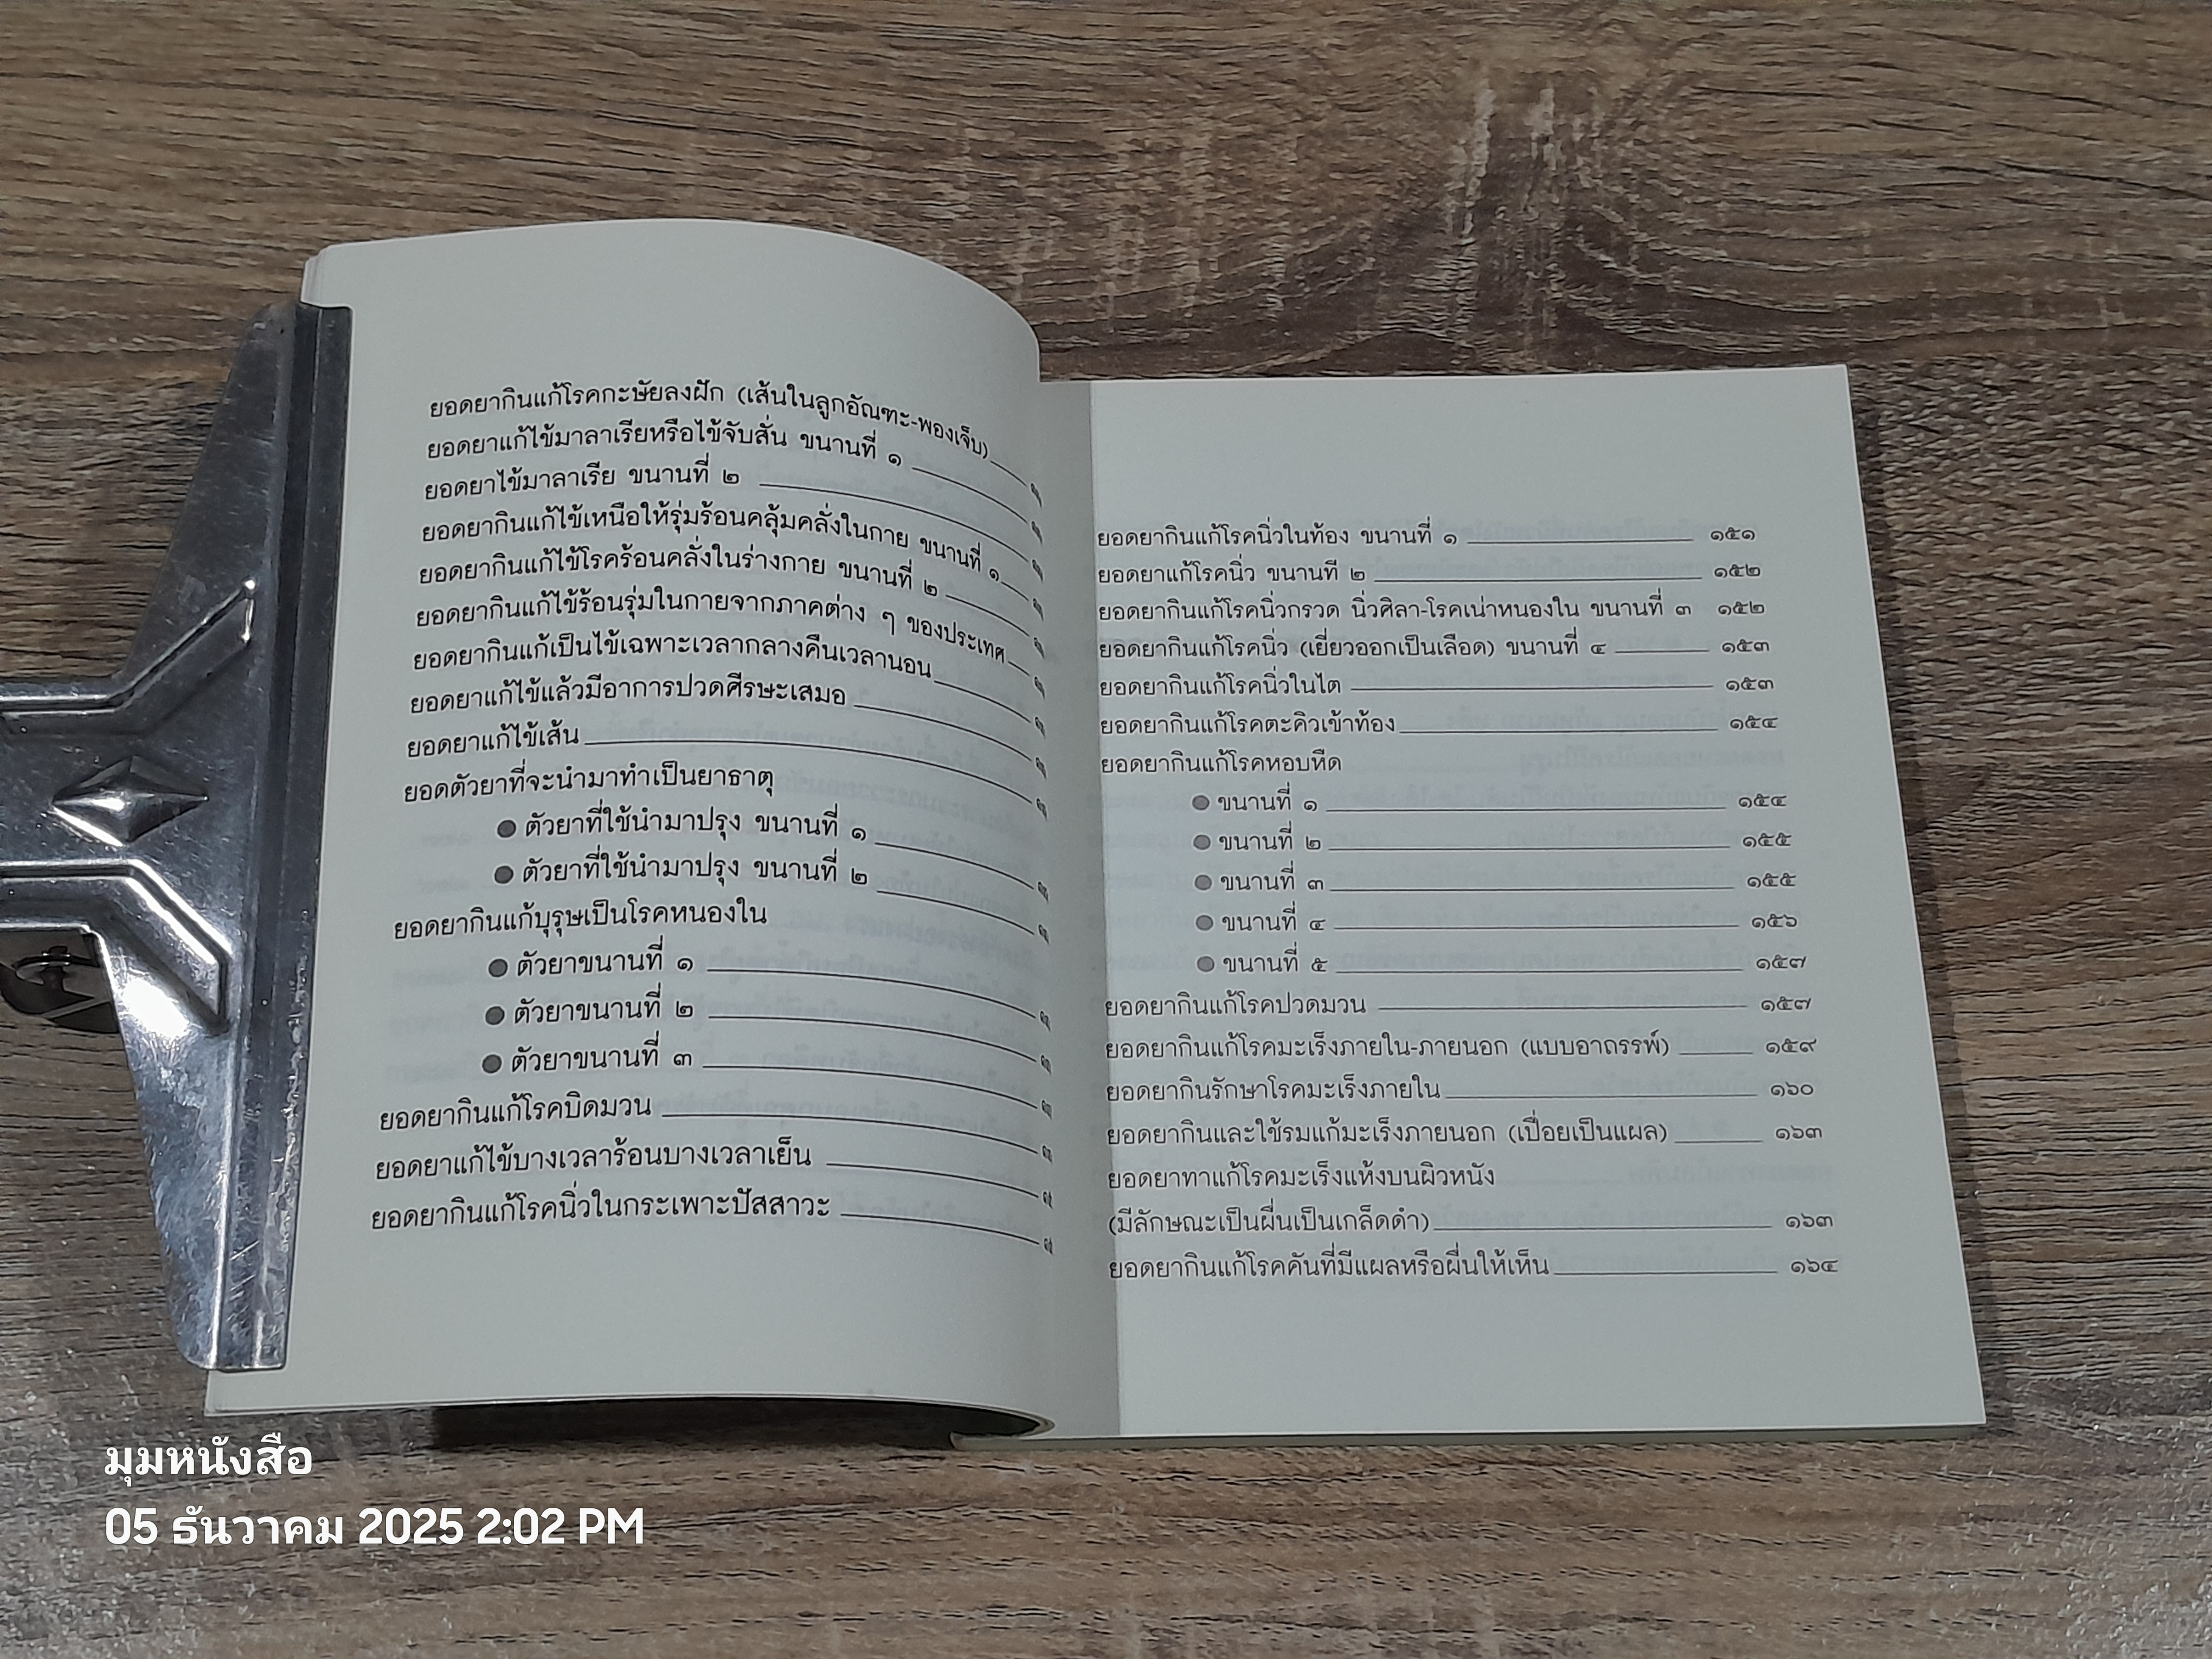 ยอดยากินแก้โรคกะษัยลงฝัก (เส้นในลูกอัณฑะ-พองเจ็บ)
ยอดยาแก้ไข้มาลาเรียหรือไข้จับสั่น ขนานที่ ๑
ยอดยาไข้มาลาเรีย ขนานที่ ๒
ยอดยากินแก้ไข้เหนือให้รุ่มร้อนคลุ้มคลั่งในกาย ขนานที่ ๑
ยอดยากินแก้ไข้โรคร้อนคลั่งในร่างกาย ขนานที่ ๒
ยอดยากินแก้ไข้ร้อนรุ่มในกายจากภาคต่าง ๆ ของประเทศ
ยอดยากินแก้เป็นไข้เฉพาะเวลากลางคืนเวลานอน
ยอดยาแก้ไข้แล้วมีอาการปวดศีรษะเสมอ
ยอดยาแก้ไข้เส้น
ยอดตัวยาที่จะนำมาทำเป็นยาธาตุ
● ตัวยาที่ใช้นำมาปรุง ขนานที่ ๑
● ตัวยาที่ใช้นำมาปรุง ขนานที่ ๒
ยอดยากินแก้บุรุษเป็นโรคหนองใน
● ตัวยาขนานที่ ๑
● ตัวยาขนานที่ ๒
● ตัวยาขนานที่ ๓
ยอดยากินแก้โรคบิดมวน
ยอดยาแก้ไข้บางเวลาร้อนบางเวลาเย็น
ยอดยากินแก้โรคนิ่วในกระเพาะปัสสาวะ
ยอดยากินแก้โรคนิ่วในท้อง ขนานที่ ๑ ๑๕๑
ยอดยาแก้โรคนิ่ว ขนานที ๒ ๑๕๒
ยอดยากินแก้โรคนิ่วกรวด นิ่วศิลา-โรคเน่าหนองใน ขนานที่ ๓ ๑๕๒
ยอดยากินแก้โรคนิ่ว (เยี่ยวออกเป็นเลือด) ขนานที่ ๔ ๑๕๓
ยอดยากินแก้โรคนิ่วในไต ๑๕๓
ยอดยากินแก้โรคตะคิวเข้าท้อง ๑๕๔
ยอดยากินแก้โรคหอบหืด
● ขนานที่ ๑ ๑๕๔
● ขนานที่ ๒ ๑๕๕
● ขนานที่ ๓ ๑๕๕
● ขนานที่ ๔ ๑๕๖
● ขนานที่ ๕ ๑๕๗
ยอดยากินแก้โรคปวดมวน ๑๕๗
ยอดยากินแก้โรคมะเร็งภายใน-ภายนอก (แบบอาถรรพ์) ๑๕๙
ยอดยากินรักษาโรคมะเร็งภายใน ๑๖๐
ยอดยากินและใช้รมแก้มะเร็งภายนอก (เปื่อยเป็นแผล) ๑๖๓
ยอดยาทาแก้โรคมะเร็งแห้งบนผิวหนัง
(มีลักษณะเป็นผื่นเป็นเกล็ดดำ) ๑๖๓
ยอดยากินแก้โรคคันที่มีแผลหรือผื่นให้เห็น ๑๖๔
มุมหนังสือ
05 ธันวาคม 2025 2:02 PM